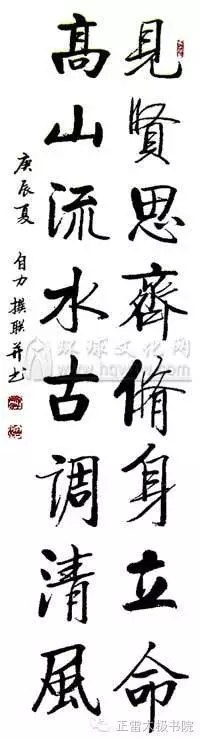 見賢思齊脩身立命
高山流水古調清風
庚辰夏
自力撰联并书
环球文化网
正雷太极书院